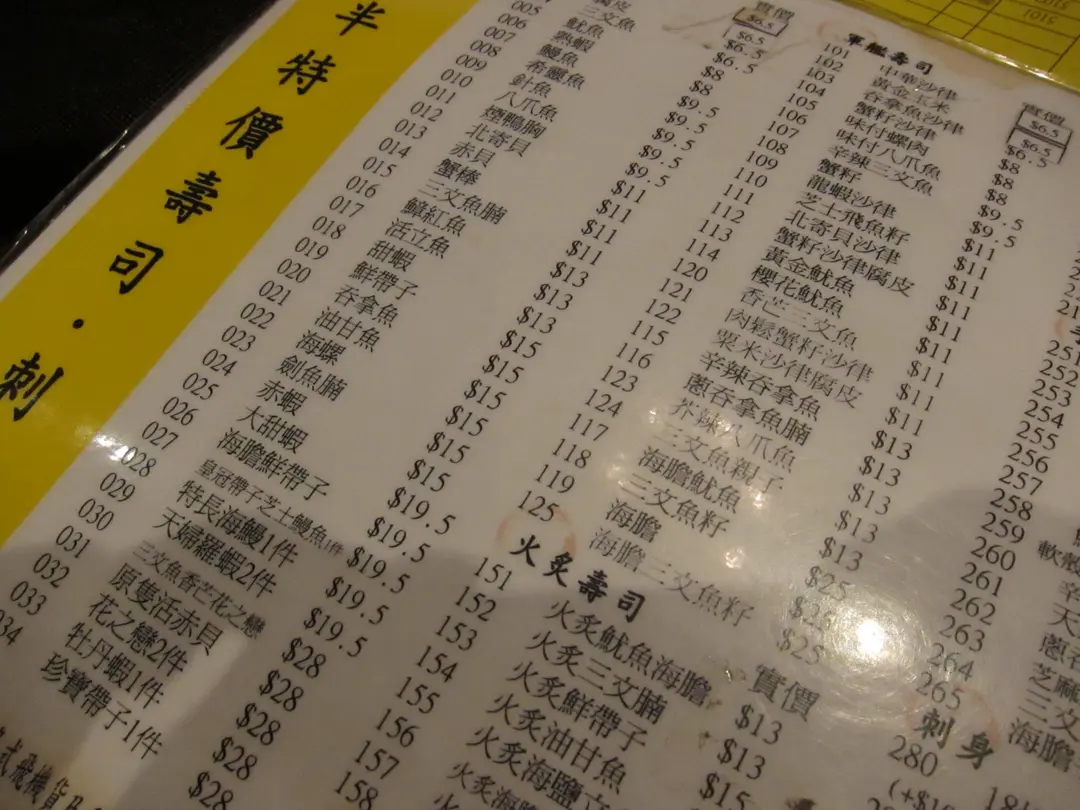 半特價壽司·刺
005
006
007
008
009
010
011
012
013
014
015
016
017
018
019
020
021
022
023
024
025
026
027
028
029
030
031
032
033
034
三文魚
魷魚
熟蝦
鰻魚
希靈魚
針魚
八爪魚
煙鴨胸
北寄貝
赤貝
蟹棒
三文魚腩
鱆紅魚
活立魚
甜蝦
鮮帶子
吞拿魚
油甘魚
海螺
劍魚腩
赤蝦
大甜蝦
海膽鮮帶子
皇冠帶子芝士鰻魚1件
特長海鰻1件
天婦羅蝦2件
三文魚香芒花之戀
原隻活赤貝
花之戀2件
牡丹蝦1件
珍寶帶子1件
實價
$6.5
$6.5
$6.5
$8
$8
$9.5
$9.5
$9.5
$9.5
$9.5
$11
$11
$11
$11
$13
$13
$13
$15
$15
$15
$15
$15
$19.5
$19.5
$19.5
$19.5
$19.5
$28
$28
$28
$28
$28
軍艦壽司
101
102
103
104
105
106
107
108
109
110
111
112
113
114
120
121
122
115
116
123
124
117
118
119
125
中華沙律
黃金玉米
吞拿魚沙律
蟹籽沙律
味付螺肉
味付八爪魚
辛辣三文魚
蟹籽
龍蝦沙律
芝士飛魚籽
北寄貝沙律
蟹籽沙律腐皮
黃金魷魚
櫻花魷魚
香芒三文魚
肉鬆蟹籽沙律
粟米沙律腐皮
辛辣吞拿魚
蔥吞拿魚腩
芥辣八爪魚
三文魚親子
海膽魷魚
三文魚籽
海膽
海膽三文魚籽
實價
$6.5
$6.5
$6.5
$8
$8
$8
$9.5
$9.5
$11
$11
$11
$11
$11
$11
$11
$11
$13
$13
$13
$13
$13
$25
$25
火炙壽司
151
152
153
154
155
156
157
158
火炙魷魚海膽
火炙三文腩
火炙鮮帶子
火炙油甘魚
實價
$13
$13
$15
251
252
253
254
255
256
257
258
259
260
261
262
263
264
265
刺身
280